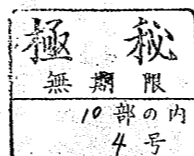 極秘
無期限
10部の内
4号